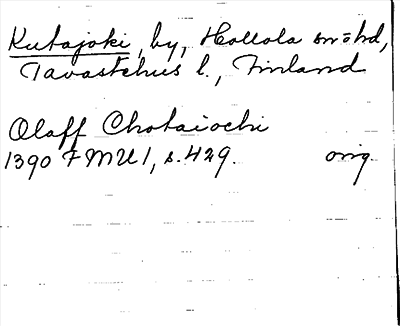 Kutajoki, by, Hollola sn o hd,
Tavastehus l., Finland
Olaff Chotaiochi
1390 FMU 1, s. 429. orig.